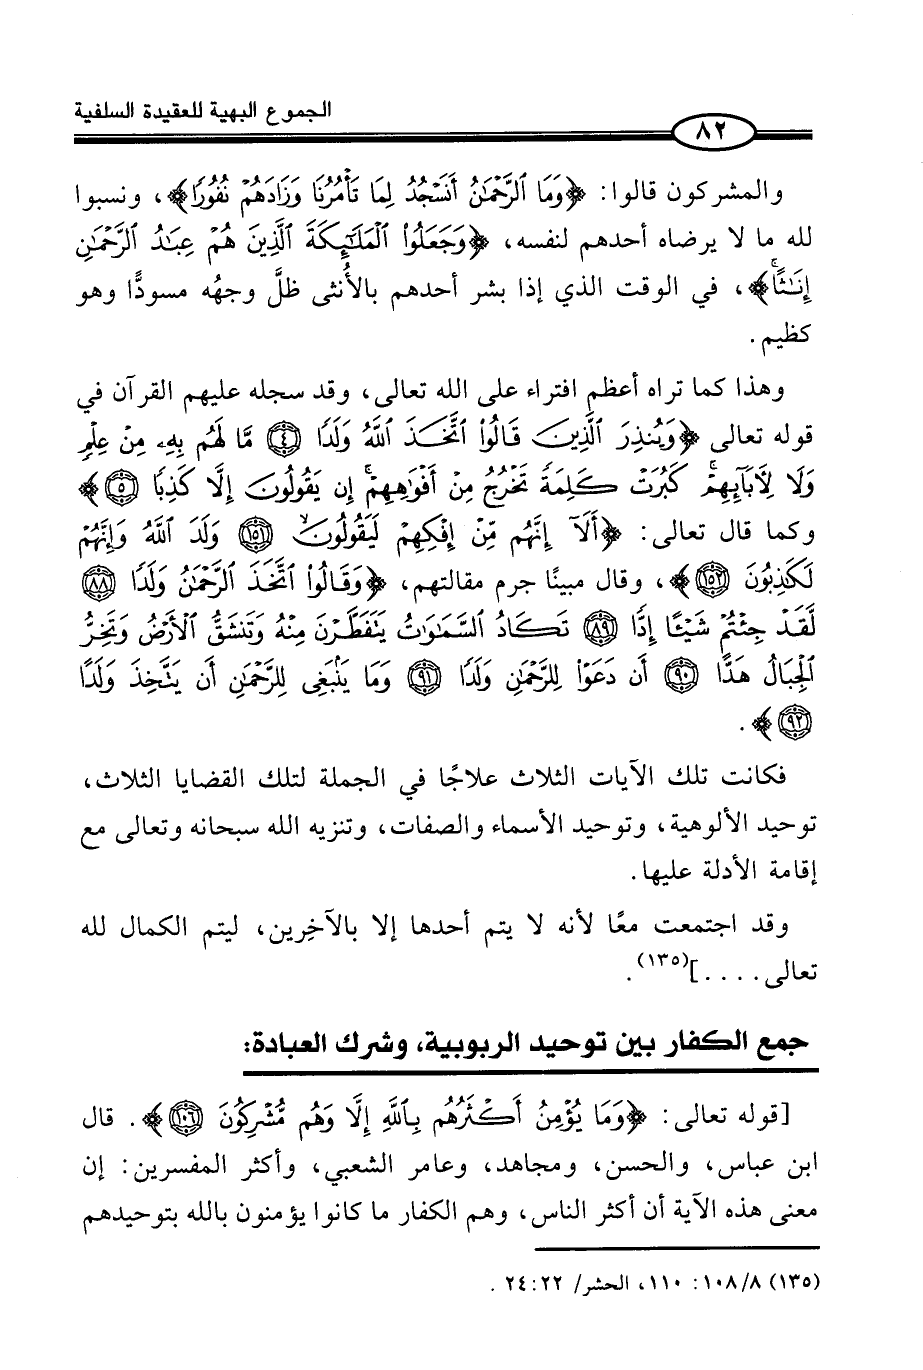 الجموع البهية للعقيدة السلفية
٨٢
والمشركون قالوا: ﴿وَمَا الرَّحْمَٰنُ أَنَسْجُدُ لِمَا تَأْمُرُنَا وَزَادَهُمْ نُفُورًا﴾، ونسبوا
لله ما لا يرضاه أحدهم لنفسه، ﴿وَجَعَلُوا الْمَلَائِكَةَ الَّذِينَ هُمْ عِبَادُ الرَّحْمَٰنِ
إِنَاثًا﴾، في الوقت الذي إذا بشر أحدهم بالأُنثى ظلَّ وجهُه مسودًّا وهو
كظيم.
وهذا كما تراه أعظم افتراء على الله تعالى، وقد سجله عليهم القرآن في
قوله تعالى ﴿وَيُنذِرَ الَّذِينَ قَالُوا اتَّخَذَ اللَّهُ وَلَدًا ٤ مَّا لَهُم بِهِ مِنْ عِلْمٍ
وَلَا لِآبَائِهِمْ كَبُرَتْ كَلِمَةً تَخْرُجُ مِنْ أَفْوَاهِهِمْ إِن يَقُولُونَ إِلَّا كَذِبًا ٥﴾
وكما قال تعالى: ﴿أَلَا إِنَّهُم مِّنْ إِفْكِهِمْ لَيَقُولُونَ ١٥١ وَلَدَ اللَّهُ وَإِنَّهُمْ
لَكَاذِبُونَ ١٥٢﴾، وقال مبينًا جرم مقالتهم، ﴿وَقَالُوا اتَّخَذَ الرَّحْمَٰنُ وَلَدًا ٨٨
لَقَدْ جِئْتُمْ شَيْئًا إِدًّا ٨٩ تَكَادُ السَّمَاوَاتُ يَتَفَطَّرْنَ مِنْهُ وَتَنشَقُّ الْأَرْضُ وَتَخِرُّ
الْجِبَالُ هَدًّا ٩٠ أَن دَعَوْا لِلرَّحْمَٰنِ وَلَدًا ٩١ وَمَا يَنبَغِي لِلرَّحْمَٰنِ أَن يَتَّخِذَ وَلَدًا
٩٢﴾.
فكانت تلك الآيات الثلاث علاجًا في الجملة لتلك القضايا الثلاث،
توحيد الألوهية، وتوحيد الأسماء والصفات، وتنزيه الله سبحانه وتعالى مع
إقامة الأدلة عليها.
وقد اجتمعت معًا لأنه لا يتم أحدها إلا بالآخرين، ليتم الكمال لله
تعالى....](١٣٥).
جمع الكفار بين توحيد الربوبية، وشرك العبادة:
[قوله تعالى: ﴿وَمَا يُؤْمِنُ أَكْثَرُهُم بِاللَّهِ إِلَّا وَهُم مُّشْرِكُونَ ١٠٦﴾. قال
ابن عباس، والحسن، ومجاهد، وعامر الشعبي، وأكثر المفسرين: إن
معنى هذه الآية أن أكثر الناس، وهم الكفار ما كانوا يؤمنون بالله بتوحيدهم
(١٣٥) ١٠٨/٨: ١١٠، الحشر/ ٢٤:٢٢.